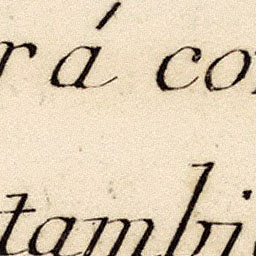 rá co
tambi